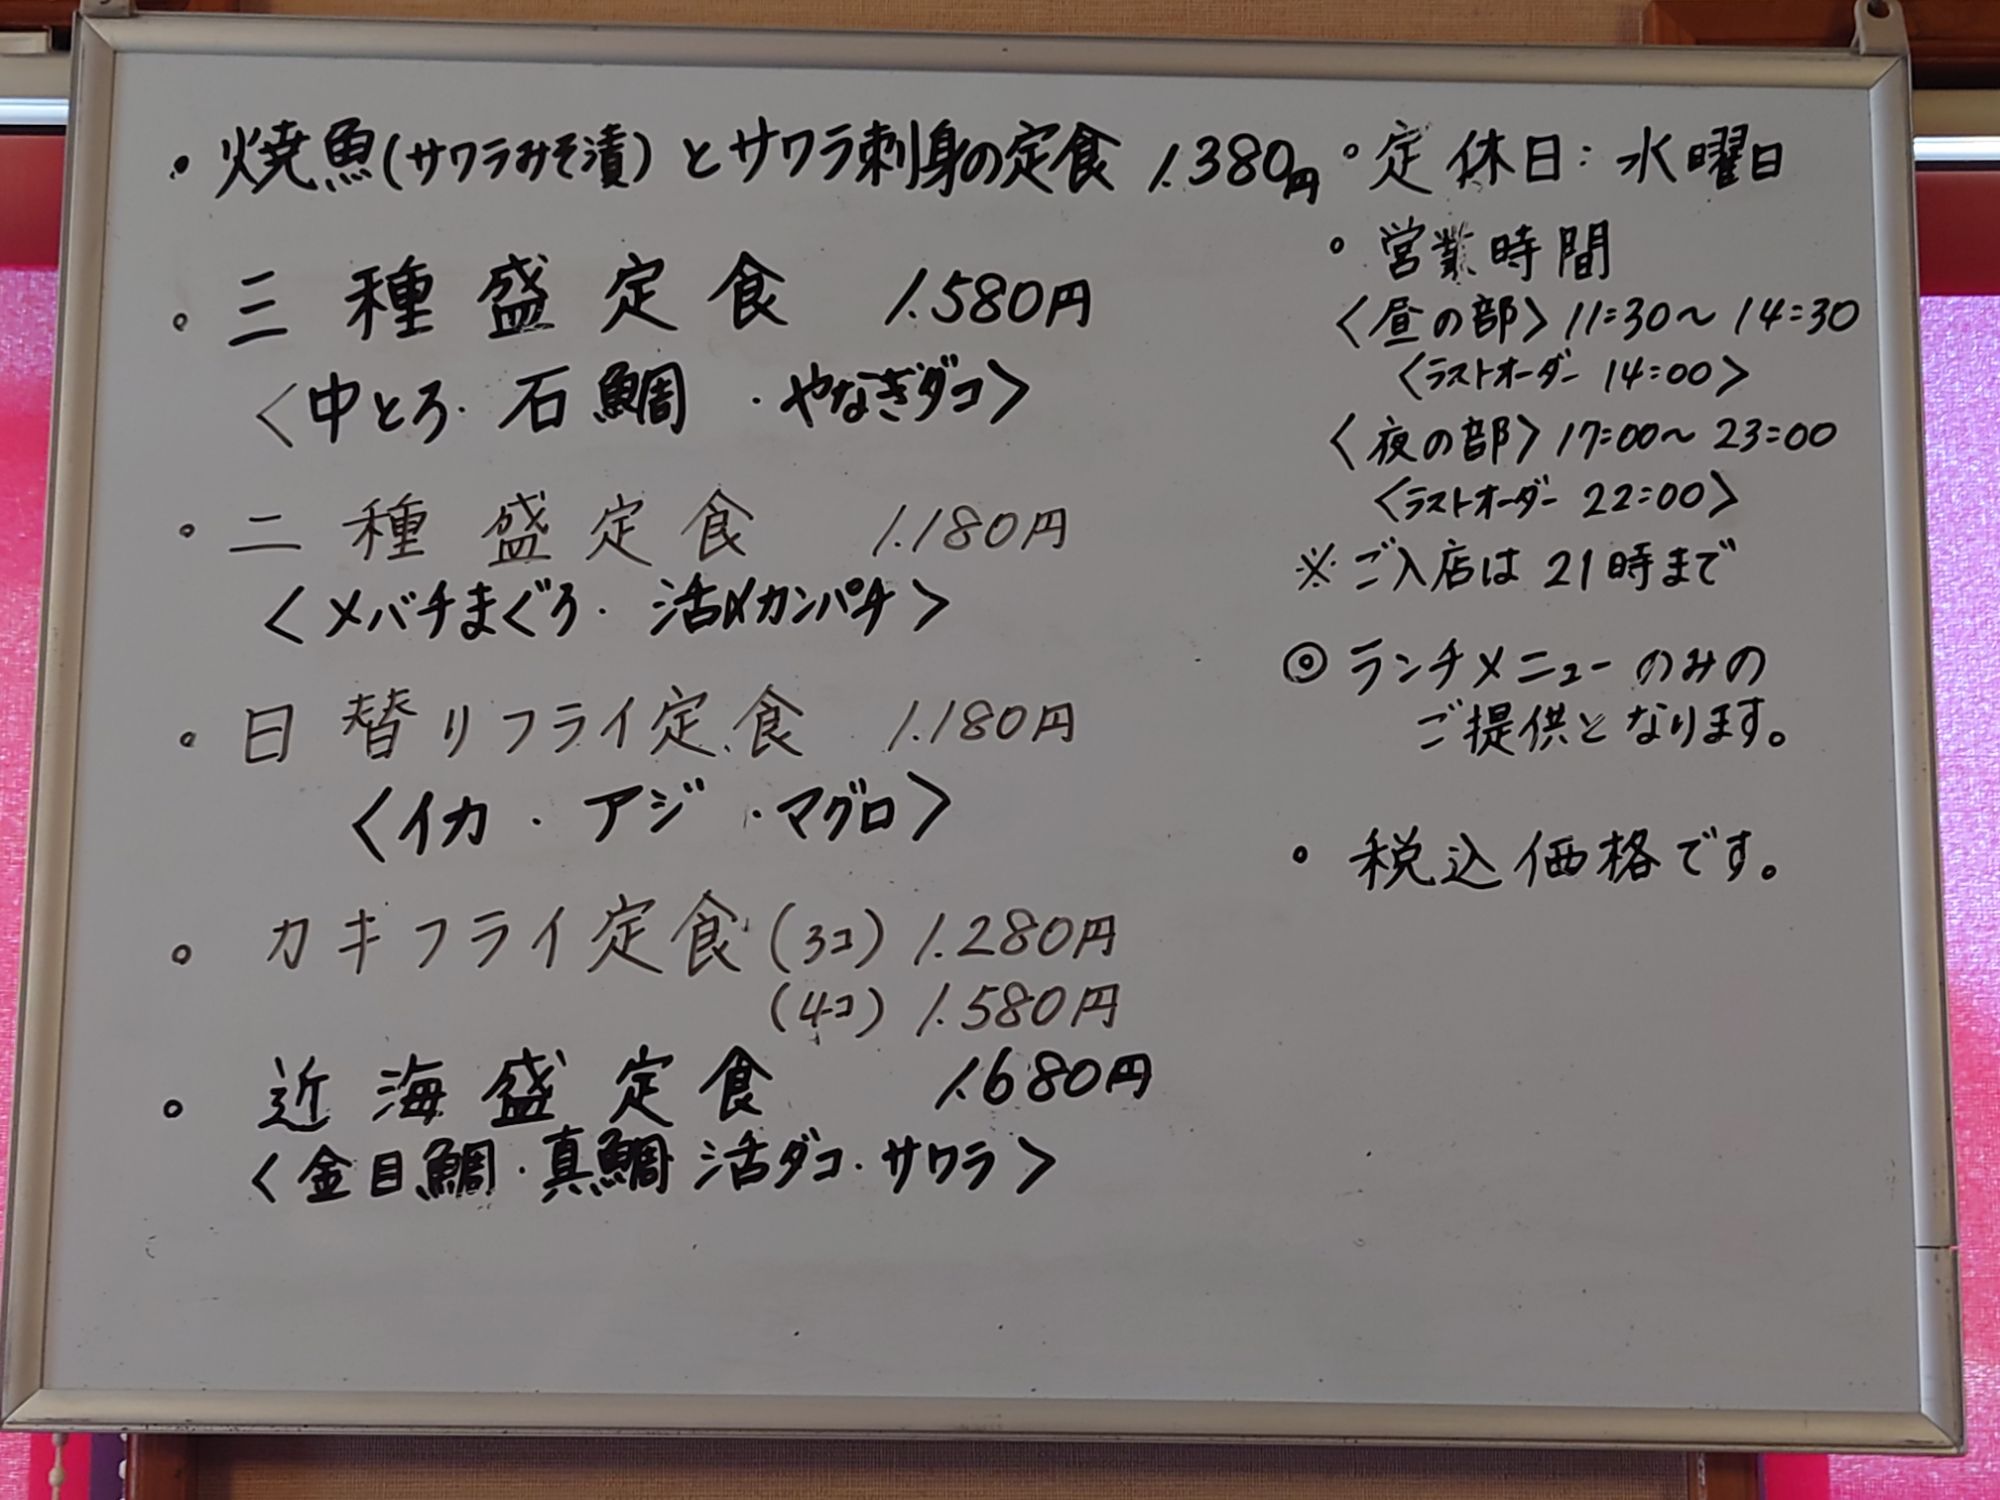 ・焼魚(サワラみそ漬)とサワラ刺身の定食 1.380円
。三種盛定食 1.580円
〈中とろ・石鯛・やなぎダコ〉
。二種盛定食 1.180円
〈メバチまぐろ・活〆カンパチ〉
。日替りフライ定食 1.180円
〈イカ・アジ・マグロ〉
。カキフライ定食(3コ) 1.280円
(4コ) 1.580円
。近海盛定食 1.680円
〈金目鯛・真鯛 活ダコ・サワラ〉
。定休日:水曜日
。営業時間
〈昼の部〉11:30〜14:30
〈ラストオーダー 14:00〉
〈夜の部〉17:00〜23:00
〈ラストオーダー 22:00〉
※ご入店は21時まで
◎ランチメニューのみの
ご提供となります。
。税込価格です。